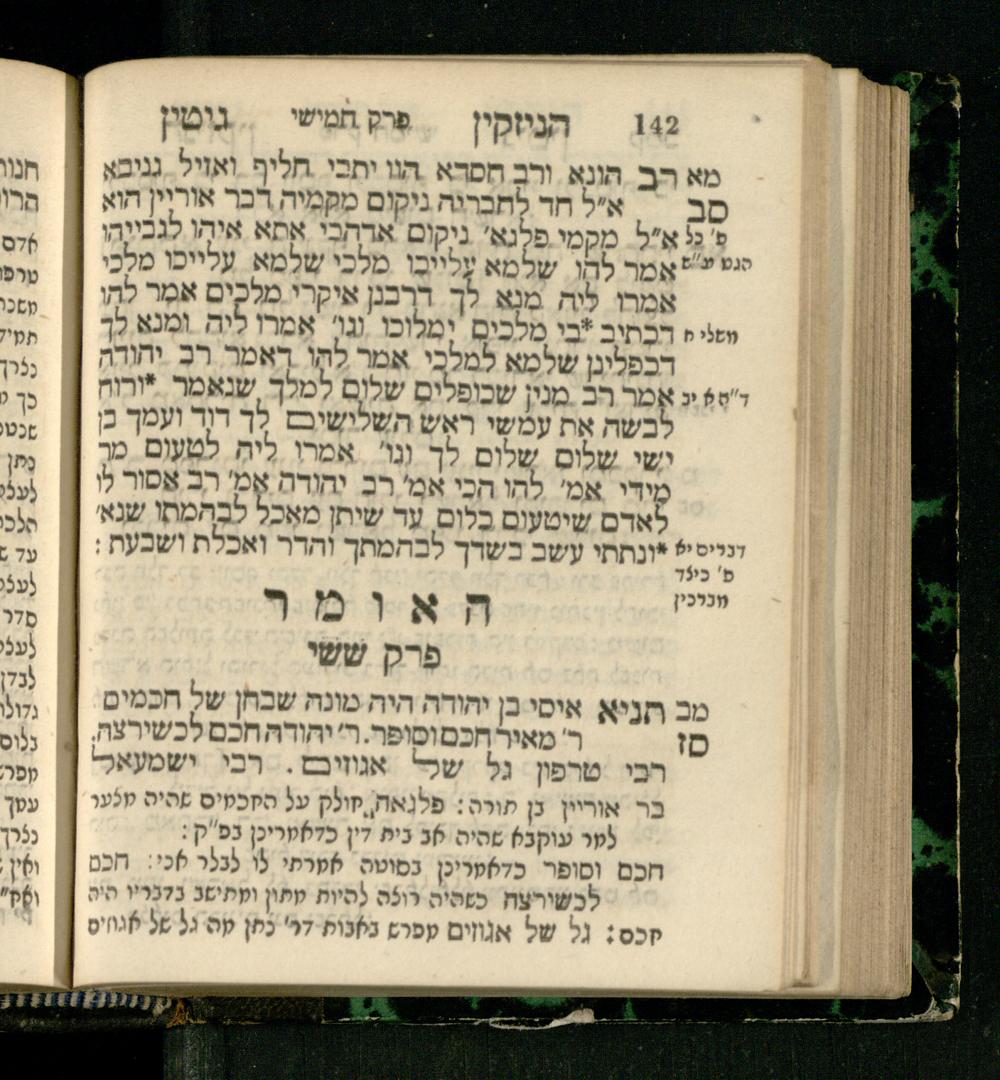 142 הניזקין פרק חמישי גיטין
מא רב הונא ורב חסדא הוו יתבי חליף ואזיל גניבא
סב א״ל חד לחבריה ניקום מקמיה דבר אוריין הוא
פ׳ כל א״ל מקמי פלגא׳ ניקום אדהכי אתא איהו לגבייהו
הגט ע״ש אמר להו שלמא עלייכו מלכי שלמא עלייכו מלכי
אמרו ליה מנא לך דרבנן איקרי מלכים אמר להו
משלי ח דכתיב *בי מלכים ימלוכו וגו׳ אמרו ליה ומנא לך
דכפלינן שלמא למלכי אמר להו דאמר רב יהודה
ד״ה א יב אמר רב מנין שכופלים שלום למלך שנאמר *ורוח
לבשה את עמשי ראש השלישים לך דוד ועמך בן
ישי שלום שלום לך וגו׳ אמרו ליה לטעום מר
מידי אמ׳ להו הכי אמ׳ רב יהודה אמ׳ רב אסור לו
לאדם שיטעום כלום עד שיתן מאכל לבהמתו שנא׳
דברים יא *ונתתי עשב בשדך לבהמתך והדר ואכלת ושבעת :
פ׳ כילד
מברכין
האומר
פרק ששי
מב תניא איסי בן יהודה היה מונה שבחן של חכמים
סז ר׳ מאיר חכם וסופר. ר׳ יהודה חכם לכשירצה.
רבי טרפון גל של אגוזים. רבי ישמעאל
בר אוריין בן תורה : פלגאה חולק על החכמים שהיה מצער
למר עוקבא שהיה אב בית דין כדאמרינן בפ״ק :
חכם וסופר כדאמרינן בסוטה אמרתי לו לבלר אני : חכם
לכשירצה כשהיה רוצה להיות מתון ומתישב בדבריו היה
חכם : גל של אגוזים מפרש באבות דר׳ נתן מה גל של אגוזים